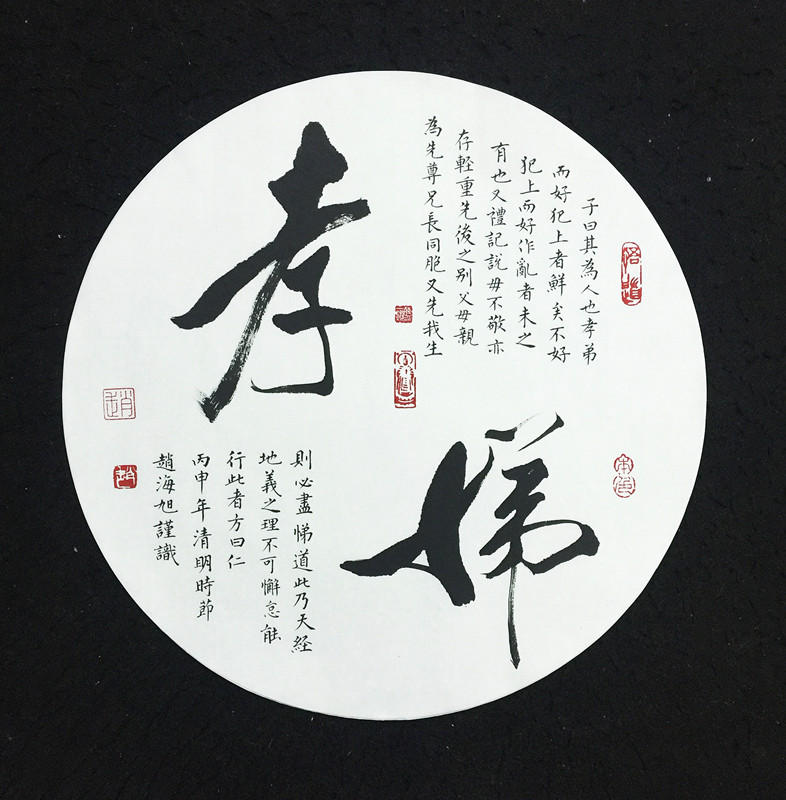 孝
悌
子曰其為人也孝弟
而好犯上者鮮矣不好
犯上而好作亂者未之
有也又禮記説毋不敬亦
存軽重先後之别父母親
為先尊兄長同胞又先我生
則必盡悌道此乃天経
地義之理不可懈怠能
行此者方曰仁
丙申年清明時節
趙海旭謹識
悟道
本色
趙